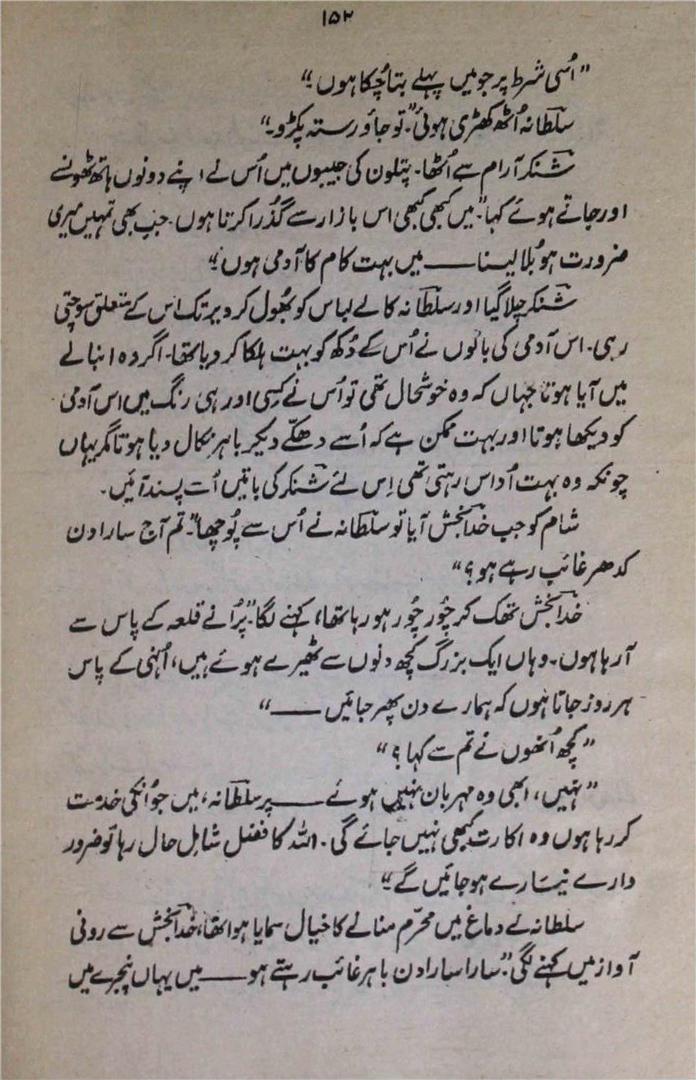 ۱۵۲
"اُسی شرط پر جو میں پہلے بتا چُکا ہوں۔"
سلطانہ اُٹھ کھڑی ہوئی "تو جاؤ رستہ پکڑو۔"
شنکر آرام سے اُٹھا۔ پتلون کی جیبوں میں اُس نے اپنے دونوں ہاتھ ٹھونسے
اور جاتے ہوئے کہا "میں کبھی کبھی اس بازار سے گُذرا کرتا ہوں۔ جب بھی تمہیں میری
ضرورت ہو بُلا لینا ـــــ میں بہت کام کا آدمی ہوں۔"
شنکر چلا گیا اور سلطانہ کالے لباس کو بھُول کر دیر تک اس کے متعلق سوچتی
رہی۔ اس آدمی کی باتوں نے اُس کے دُکھ کو بہت ہلکا کر دیا تھا۔ اگر وہ انبالے
میں آیا ہوتا جہاں کہ وہ خوشحال تھی تو اُس نے کِسی اور ہی رنگ میں اس آدمی
کو دیکھا ہوتا اور بہت ممکن ہے کہ اُسے دھکّے دیکر باہر نکال دیا ہوتا مگر یہاں
چونکہ وہ بہت اُداس رہتی تھی اِس لئے شنکر کی باتیں اُسے پسند آئیں۔
شام کو جب خدا بخش آیا تو سلطانہ نے اُس سے پُوچھا "تم آج سارا دن
کدھر غائب رہے ہو؟"
خدا بخش تھک کر چُور چُور ہو رہا تھا، کہنے لگا "پُرانے قلعہ کے پاس سے
آ رہا ہوں۔ وہاں ایک بزرگ کچھ دنوں سے ٹھیرے ہوئے ہیں، اُنہی کے پاس
ہر روز جاتا ہوں کہ ہمارے دن پھر جائیں ـــــ"
"کچھ اُنھوں نے تم سے کہا؟"
"نہیں، ابھی وہ مہربان نہیں ہوئے ـــــ پر سلطانہ، میں جو اُنکی خدمت
کر رہا ہوں وہ اکارت کبھی نہیں جائے گی۔ اللہ کا فضل شاملِ حال رہا تو ضرور
وارے نیارے ہو جائیں گے۔"
سلطانہ کے دماغ میں محرّم منانے کا خیال سمایا ہوا تھا، خدا بخش سے رونی
آواز میں کہنے لگی "سارا سارا دن باہر غائب رہتے ہو ـــــ میں یہاں پنجرے میں